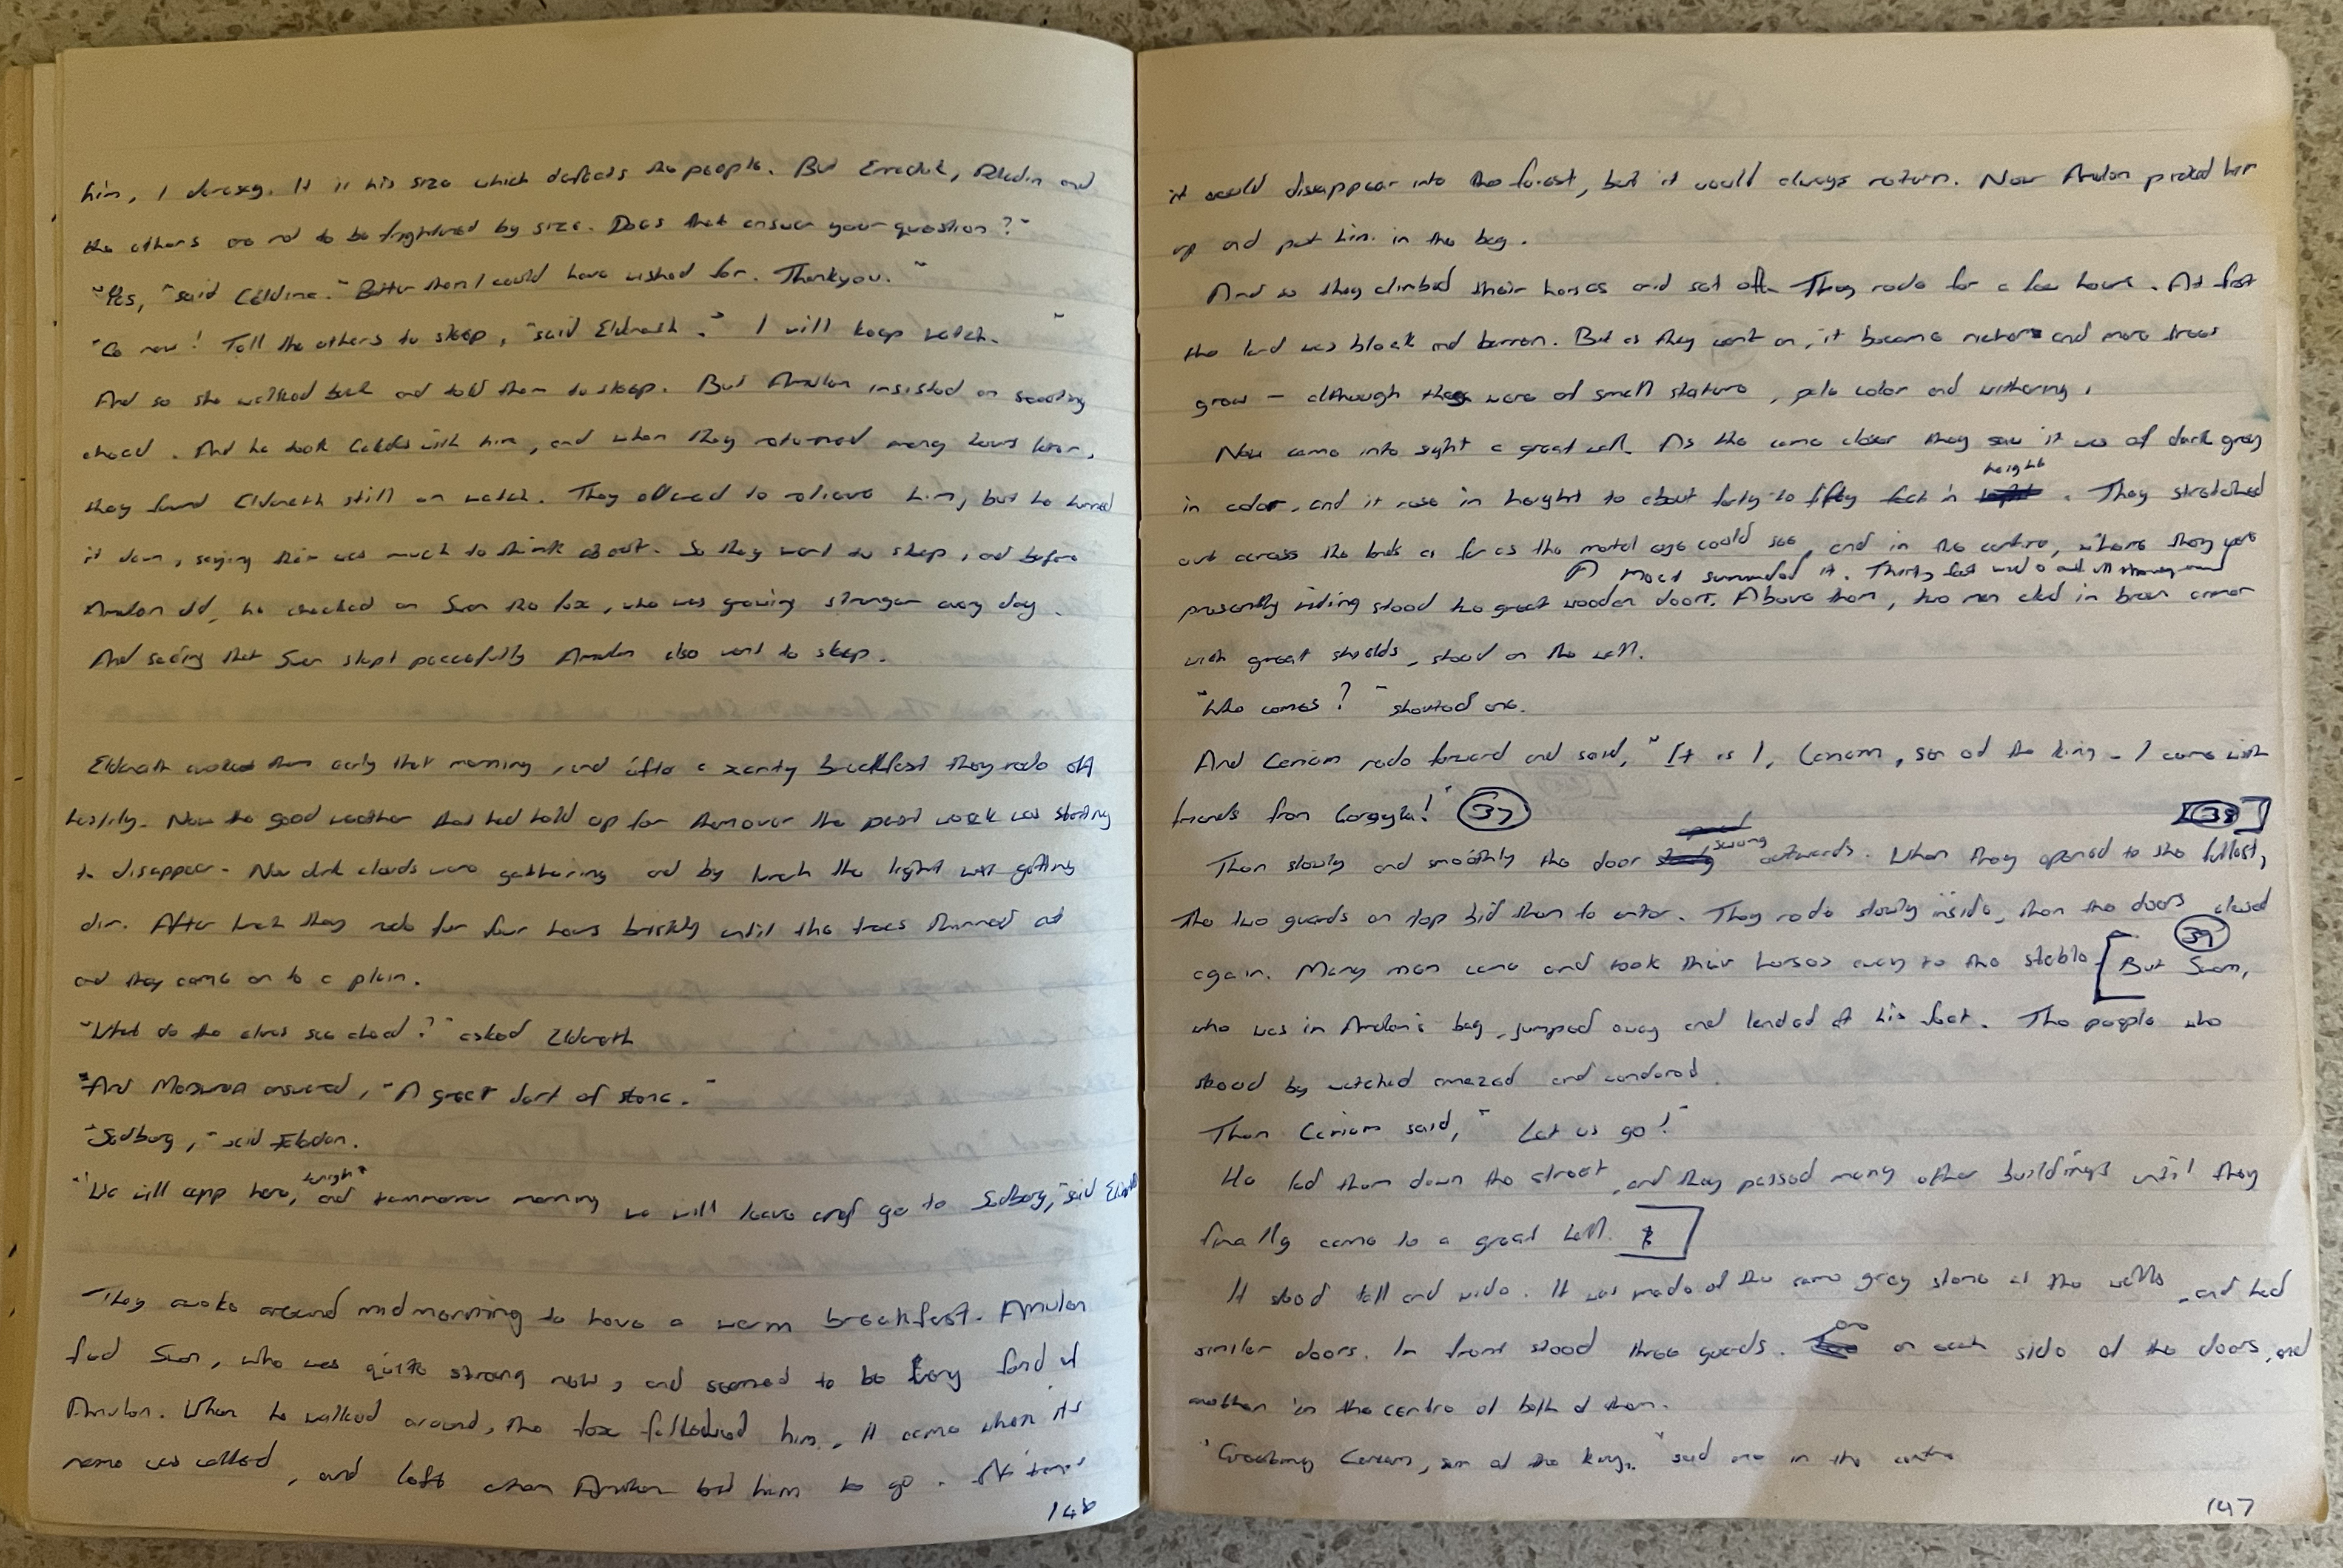 him, I daresay. It is his size which defeats the people. But Erraduk, Peladin and
the others are not to be frightened by size. Does that answer your question?"
"Yes," said Celdine. "Better than I could have wished for. Thankyou."
"Go now! Tell the others to sleep," said Eldnath. "I will keep watch."
And so she walked back and told them to sleep. But Amulon insisted on scouting
ahead. And he took with him, and when they returned many hours later,
they found Eldnath still on watch. They offered to relieve him, but he turned
it down, saying there was much to think about. So they went to sleep, and before
Amulon did, he checked on Swon the fox, who was growing stronger every day.
And seeing that Swon slept peacefully Amulon also went to sleep.
Eldnath awoke them early that morning, and after a scanty breakfast they rode off
hastily. Now the good weather that had held up for them over the past week was starting
to disappear. Now dark clouds were gathering and by lunch the light was getting
dim. After lunch they rode for four hours briskly until the trees thinned out
and they came on to a plain.
"What do the elves see ahead?" asked Eldnath
And answered, "A great fort of stone."
"Sedburg," said
"We will camp here, tonight and tommorrow morning we will leave and go to Sedburg," said
They awoke around midmorning to have a warm breakfast. Amulon
fed Swon, who was quite strong now, and seemed to be very fond of
Amulon. When he walked around, the fox followed him. It came when its
name was called, and left when Amulon bid him to go. At times
146
it would disappear into the forest, but it would always return. Now Amulon picked him
up and put him in the bag.
And so they climbed their horses and set off. They rode for a few hours. At first
the land was bleak and barren. But as they went on, it became richer and more trees
grew - although they were of small stature, pale color and withering.
Now came into sight a great wall. As the came closer they saw it was of dark grey
in color, and it rose in height to about forty to fifty feet in height. They stretched
out across the lands as far as the mortal eye could see, and in the centre, where they were
A moat surrounded it. Thirty feet
presently riding stood two great wooden doors. Above them, two men clad in brown armor
with great shields, stood on the wall.
"Who comes?" shouted one.
And Ceriom rode forward and said, "It is I, Ceriom, son of the king - I come with
friends from Gorgyla!" 37
38
Then slowly and smoothly the door swung outwards. When they opened to the fullest,
the two guards on top bid them to enter. They rode slowly inside, then the doors closed
39
again. Many men came and took their horses away to the stable. [But Swon,
who was in Amulon's bag, jumped away and landed at his feet. The people who
stood by watched amazed and wondered.
Then Ceriom said, "Let us go!"
He led them down the street, and they passed many other buildings until they
finally came to a great hall.
It stood tall and wide. It was made of the same grey stone as the walls, and had
similar doors. In front stood three guards. one on each side of the doors, and
another in the centre of both of them.
"Greetings Ceriom, son of the king," said one in the centre
147